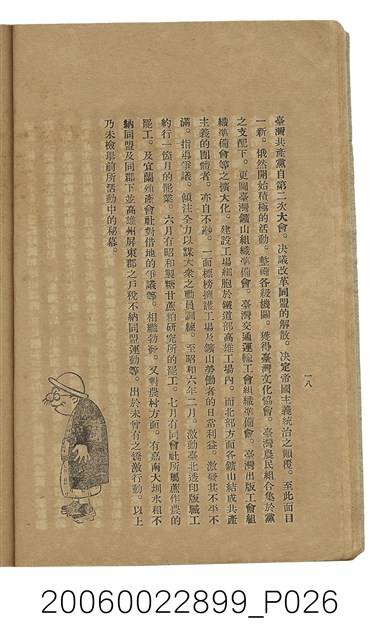 臺灣共產黨自第二次大會。決議改革同盟的解散。決定帝國主義統治之顚覆。至此面目
一新。俄然開始積極的活動。整備各級機關。獲得臺灣文化協會。臺灣農民組合集於黨
之支配下。更圖臺灣鑛山組織準備會。臺灣交通運輸工會組織準備會。臺灣出版工會組
織準備會等之擴大化。建設工場細胞於鐵道部高雄工場內。而北部方面各鑛山結成共產
主義的團體者。亦自不尠。一面標榜擁護工場及鑛山勞働者的日常利益。激發其不平不
滿。指導爭議。傾注全力以謀大衆之動員訓練。至昭和六年二月。激動臺北透印版職工
約行一箇月的罷業。六月有昭和製糖甘蔗粕研究所的罷工。七月有同會社所屬蔗作農的
罷工。及宜蘭殖產會社對借地的爭議等。相繼勃發。又對農村方面。有嘉南大圳水租不
納同盟及同郡下並高雄州屏東郡之戶稅不納同盟運動等。出於未曾有之矯激行動。以上
乃未檢舉前所活動中的秘幕。
一八
20060022899_P026